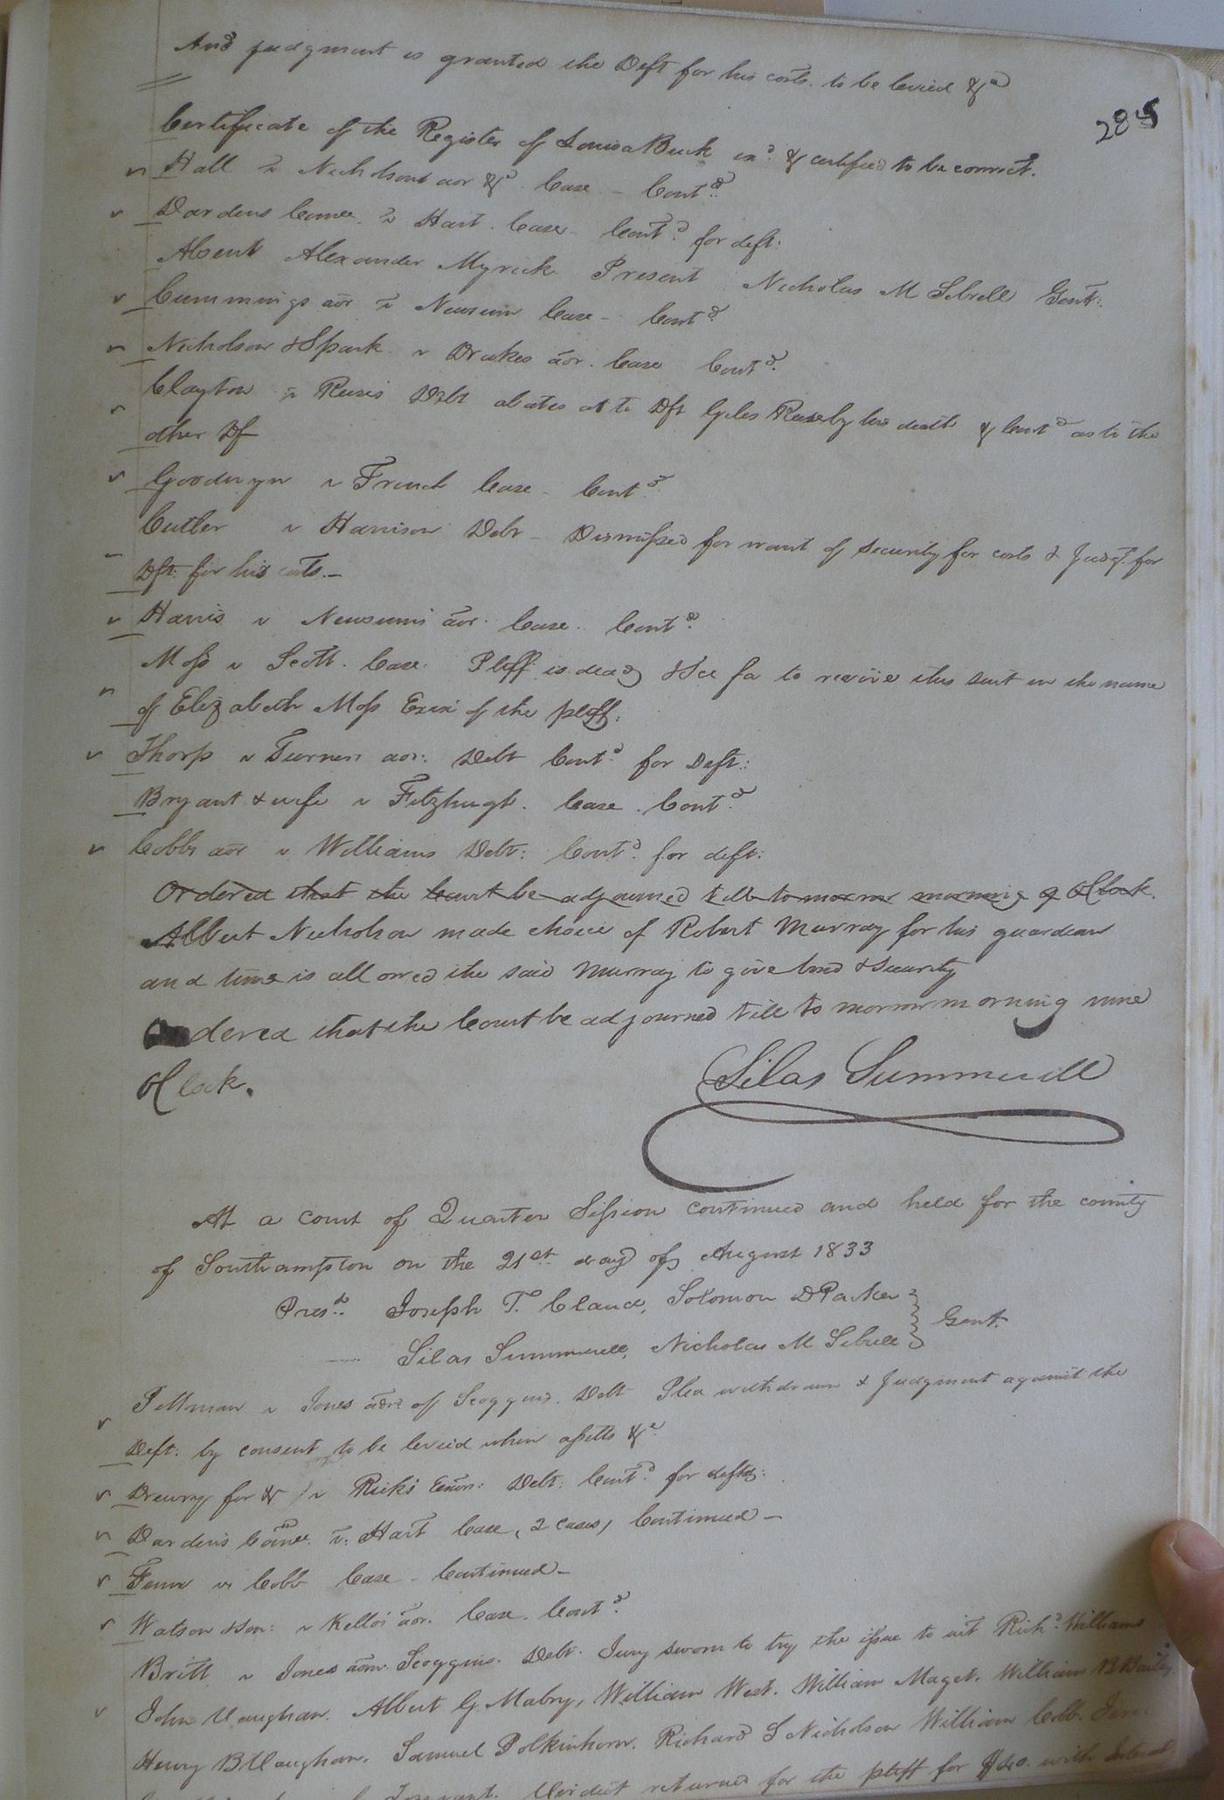 And judgment is granted the Deft for his costs. to be levied &a
285
Certificate of the Register of Louisa Buck exd & certified to be correct.
Hall v Nicholsons aor &c Case - Contd
Dardens Comee v Hart. Case - Contd for deft:
Absent Alexander Myrick Present Nicholas M Sebrell Gent:
Cummings aor v Newsum Case - Contd
Nicholson & Spark v Drakes aor. Case Contd
Clayton v Reeses Debt abates as to Dft Giles Reese by his death & Contd as to the
other Df
Goodwyn v French Case - Contd
Cutler v Harrison Debt - Dismissed for want of security for costs & Judgt. for
Dft. for his costs. -
Harris v Newsums aor. Case. Contd
Moss v Scott. Case. Pltff is dead & Sci fa to revive this suit in the name
of Elizabeth Moss Exix of the pltff.
Thorp v Turners aor: Debt Contd for Deft:
Bryant & wife v Fitzhugh. Case. Contd
Cobbs aor v Williams Debt: Contd. for deft:
Ordered that the Court be adjourned till tomorrow morning 9 OClock.
Albert Nicholson made choice of Robert Murray for his guardian
and time is allowed the said Murray to give bond & security
Ordered that the Court be adjourned till to morrow morning nine
OClock.
Silas Summerell
At a court of Quarter Session continued and held for the county
of Southampton on the 21st. day of August 1833
Presd. Joseph T. Claud, Solomon D Parker
Silas Summerell, Nicholas M Sebrell Gent.
Pittman v Jones admr of Scoggins. Debt Plea withdrawn & Judgment against the
Deft. by consent to be levied when assetts &c
Drewry for & v Ricks Exors: Debt: Contd for defts:
Dardens Comee. v. Hart Case, 2 cases, Continued -
Fenn vs Cobb Case - Continued -
Watson & son: v Kellos aor. Case. Contd
Britt v Jones admr. Scoggins. Debt. Jury sworn to try the issue to wit Richd. Williams
John Vaughan. Albert G Mabry, William West. William Maget. William B Bailey
Henry B Vaughan. Samuel Polkinhorn. Richard S Nicholson William Cobb.
Verdict returned for the pltff for $40. with Interest